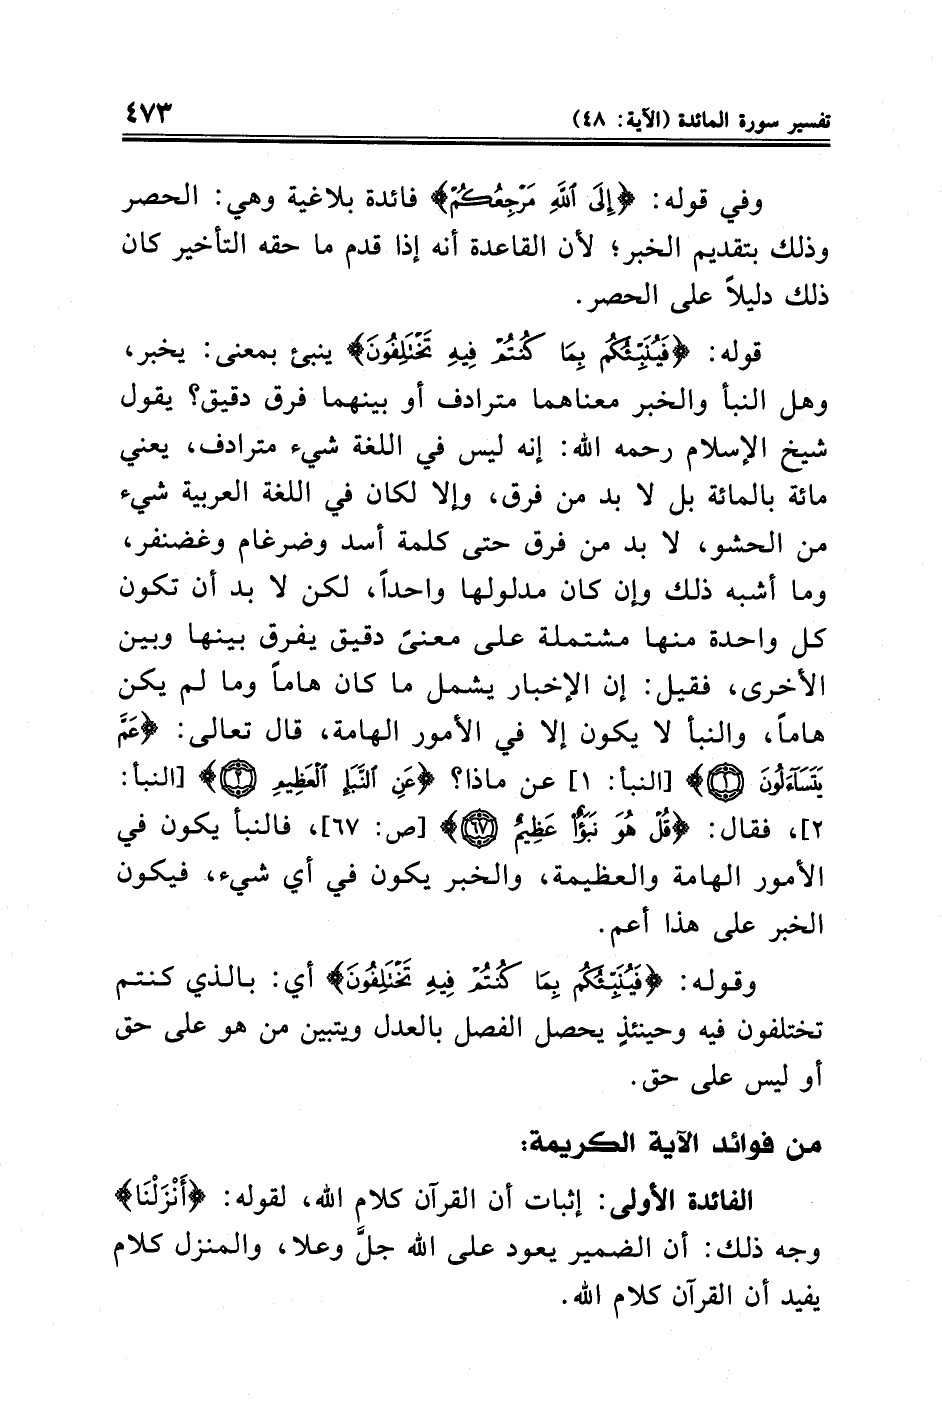 تفسير سورة المائدة (الآية: ٤٨) ٤٧٣
وفي قوله: ﴿إِلَى ٱللَّهِ مَرْجِعُكُمْ﴾ فائدة بلاغية وهي: الحصر
وذلك بتقديم الخبر؛ لأن القاعدة أنه إذا قدم ما حقه التأخير كان
ذلك دليلاً على الحصر.
قوله: ﴿فَيُنَبِّئُكُم بِمَا كُنتُمْ فِيهِ تَخْتَلِفُونَ﴾ ينبئ بمعنى: يخبر،
وهل النبأ والخبر معناهما مترادف أو بينهما فرق دقيق؟ يقول
شيخ الإسلام رحمه الله: إنه ليس في اللغة شيء مترادف، يعني
مائة بالمائة بل لا بد من فرق، وإلا لكان في اللغة العربية شيء
من الحشو، لا بد من فرق حتى كلمة أسد وضرغام وغضنفر،
وما أشبه ذلك وإن كان مدلولها واحداً، لكن لا بد أن تكون
كل واحدة منها مشتملة على معنىً دقيق يفرق بينها وبين
الأخرى، فقيل: إن الإخبار يشمل ما كان هاماً وما لم يكن
هاماً، والنبأ لا يكون إلا في الأمور الهامة، قال تعالى: ﴿عَمَّ
يَتَسَآءَلُونَ ١﴾ [النبأ: ١] عن ماذا؟ ﴿عَنِ ٱلنَّبَإِ ٱلْعَظِيمِ ٢﴾ [النبأ:
٢]، فقال: ﴿قُلْ هُوَ نَبَؤٌا عَظِيمٌ ٦٧﴾ [ص: ٦٧]، فالنبأ يكون في
الأمور الهامة والعظيمة، والخبر يكون في أي شيء، فيكون
الخبر على هذا أعم.
وقوله: ﴿فَيُنَبِّئُكُم بِمَا كُنتُمْ فِيهِ تَخْتَلِفُونَ﴾ أي: بالذي كنتم
تختلفون فيه وحينئذٍ يحصل الفصل بالعدل ويتبين من هو على حق
أو ليس على حق.
من فوائد الآية الكريمة:
الفائدة الأولى: إثبات أن القرآن كلام الله، لقوله: ﴿أَنْزَلْنَا﴾
وجه ذلك: أن الضمير يعود على الله جلَّ وعلا، والمنزل كلام
يفيد أن القرآن كلام الله.